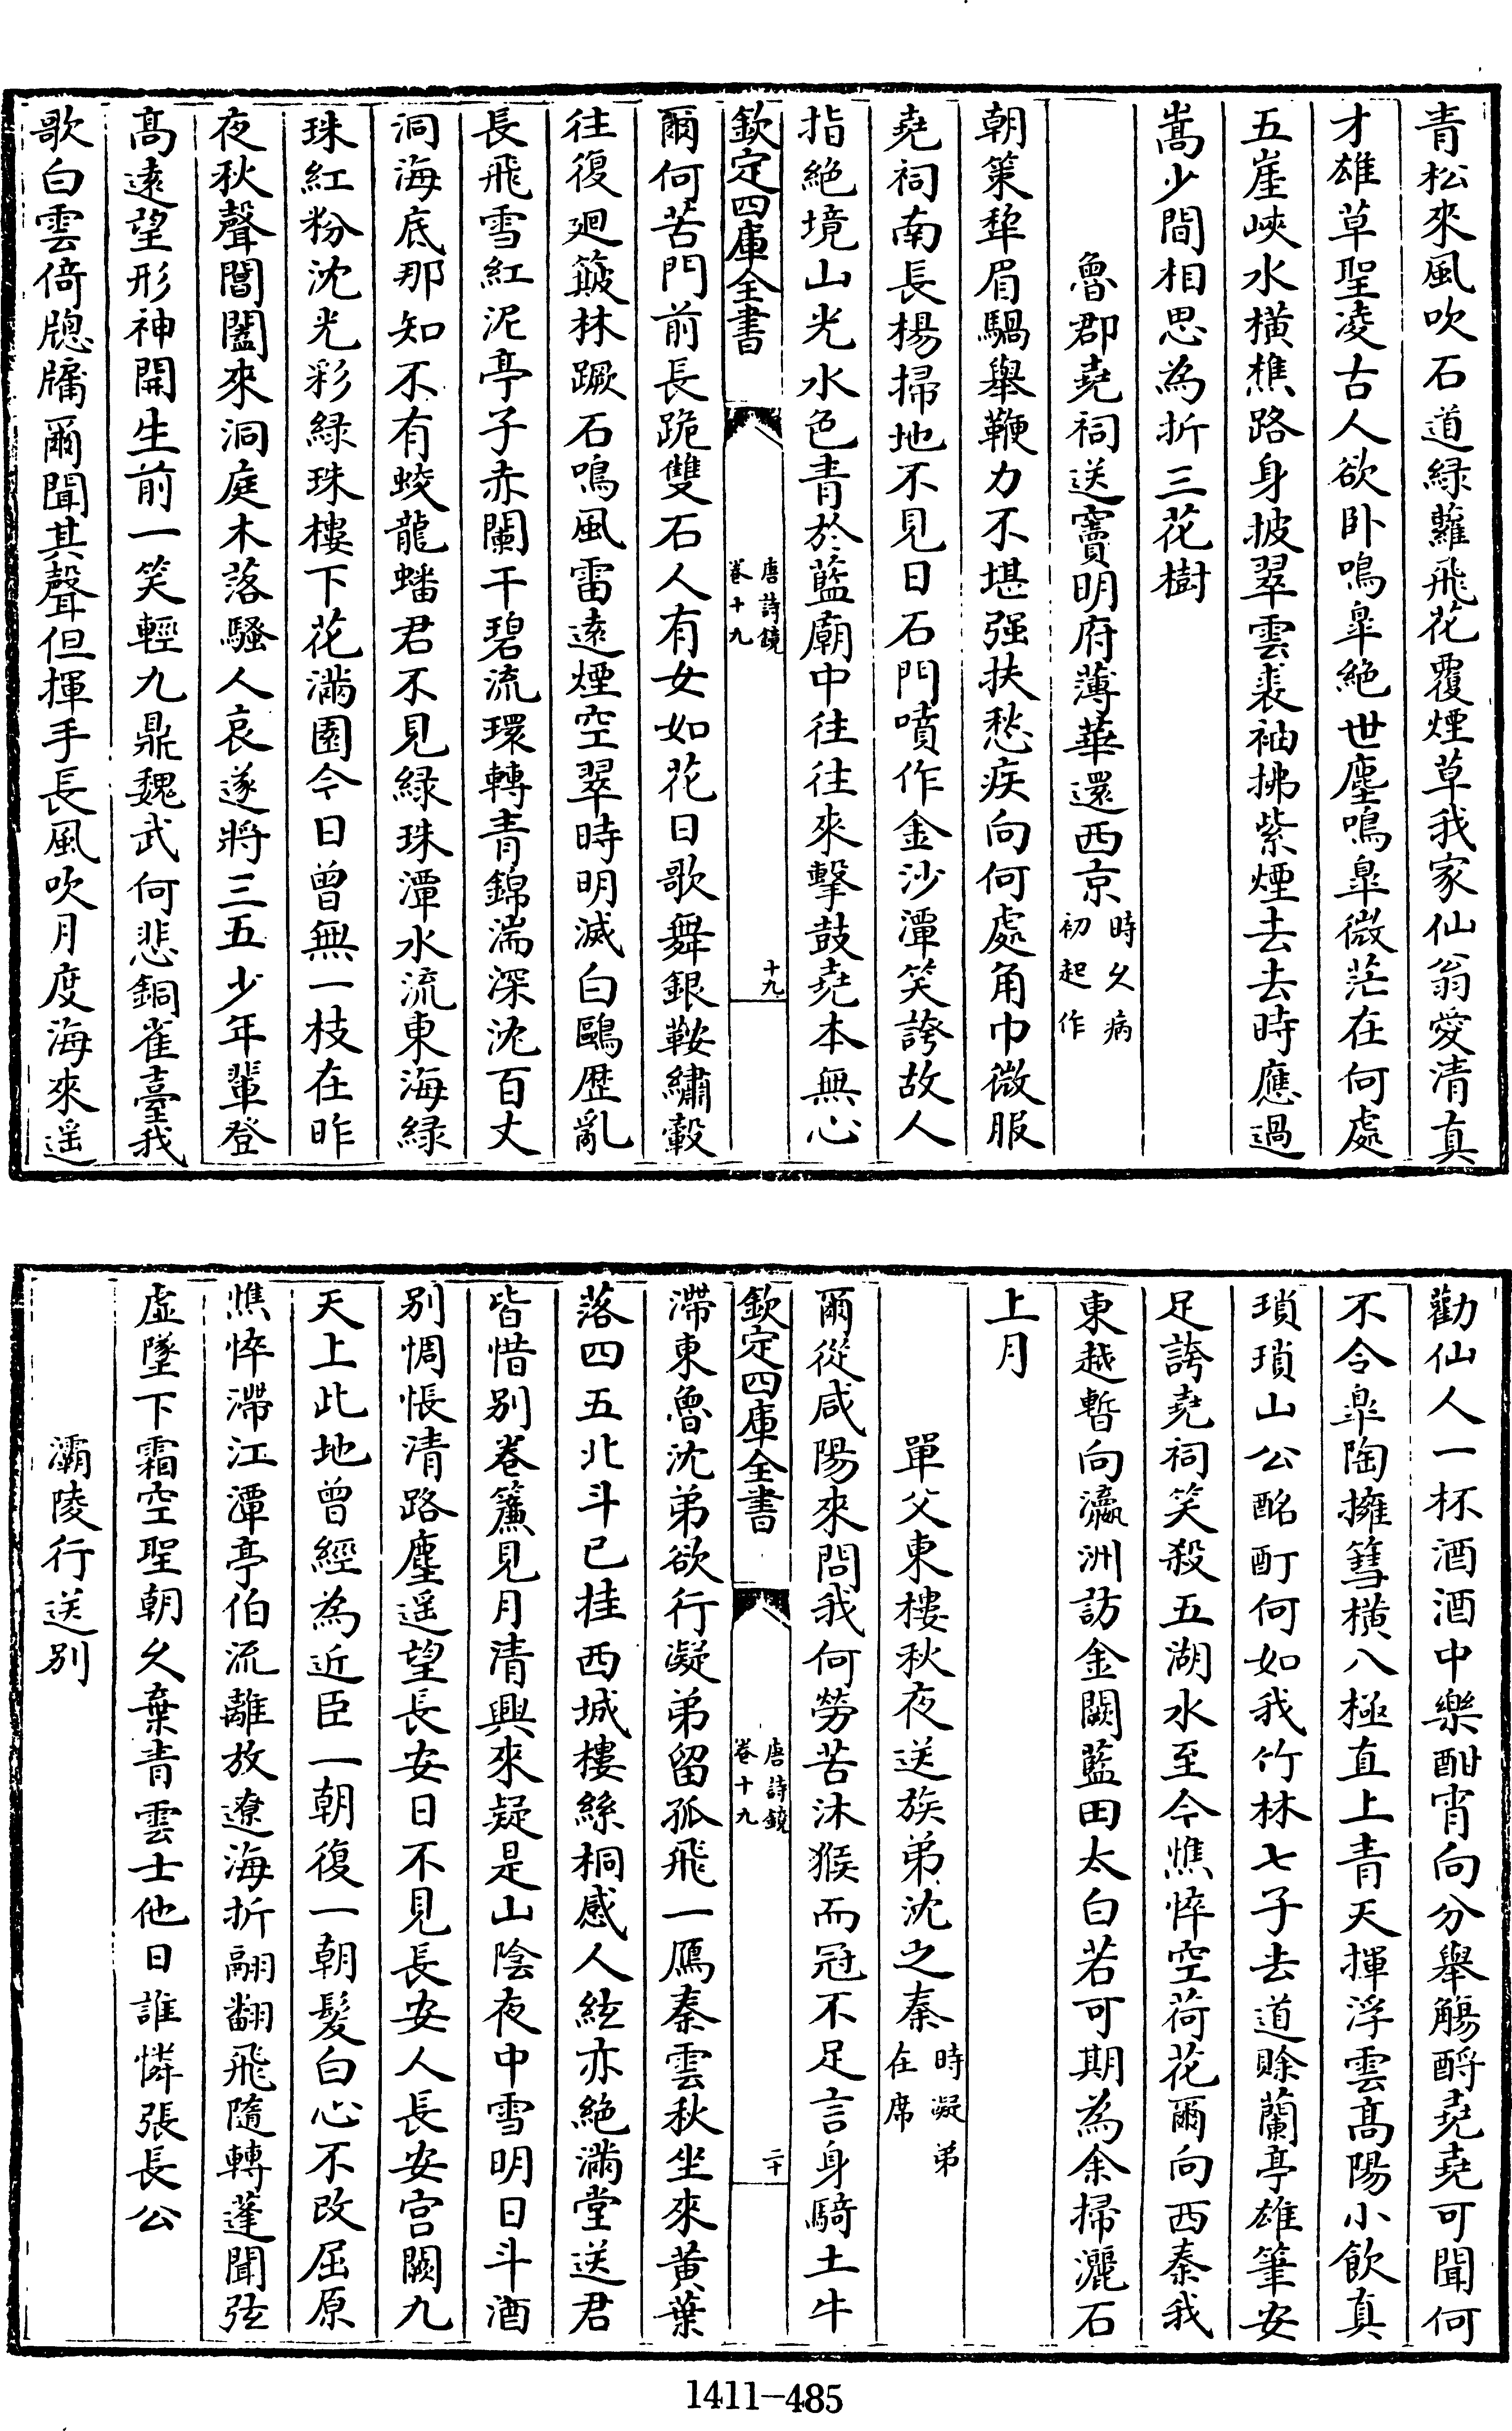 青松來風吹石道緑蘿飛花覆煙草我家仙翁愛清真
才雄草聖凌古人欲卧鳴臯絶世塵鳴臯微茫在何處
五崖峽水横樵路身披翠雲裘袖拂紫煙去去時應過
嵩少間相思為折三花樹
魯郡堯祠送竇明府薄華還西京時久病初起作
朝策犂眉騧舉鞭力不堪强扶愁疾向何處角巾微服
堯祠南長楊掃地不見日石門噴作金沙潭笑誇故人
指絶境山光水色青於藍廟中往往來擊鼓堯本無心
欽定四庫全書
唐詩鏡
卷十九
十九
爾何苦門前長跪雙石人有女如花日歌舞銀鞍繡轂
往復廻簸林蹶石鳴風雷遠煙空翠時明滅白鷗歴亂
長飛雪紅泥亭子赤闌干碧流環轉青錦湍深沈百丈
洞海底那知不有蛟龍蟠君不見緑珠潭水流東海緑
珠紅粉沈光彩緑珠樓下花滿園今日曾無一枝在昨
夜秋聲閶闔來洞庭木落騷人哀遂將三五少年輩登
髙遠望形神開生前一笑輕九鼎魏武何悲銅雀臺我
歌白雲倚牎牗爾聞其聲但揮手長風吹月度海來遥
勸仙人一杯酒酒中樂酣宵向分舉觴酹堯堯可聞何
不令臯陶擁篲横八極直上青天揮浮雲髙陽小飲真
瑣瑣山公酩酊何如我竹林七子去道賖蘭亭雄筆安
足誇堯祠笑殺五湖水至今憔悴空荷花爾向西秦我
東越暫向瀛洲訪金闕藍田太白若可期為余掃灑石
上月
單父東樓秋夜送族弟沈之秦時凝弟在席
爾從咸陽來問我何勞苦沐猴而冠不足言身騎土牛
欽定四庫全書
唐詩鏡
卷十九
二十
滯東魯沈弟欲行凝弟留孤飛一鴈秦雲秋坐來黄葉
落四五北斗已挂西城樓絲桐感人絃亦絶滿堂送君
皆惜别卷簾見月清興來疑是山陰夜中雪明日斗酒
别惆悵清路塵遥望長安日不見長安人長安宫闕九
天上此地曾經為近臣一朝復一朝髮白心不改屈原
憔悴滯江潭亭伯流離放遼海折翮翻飛隨轉蓬聞弦
虚墜下霜空聖朝久棄青雲士他日誰憐張長公
灞陵行送别
1411-485